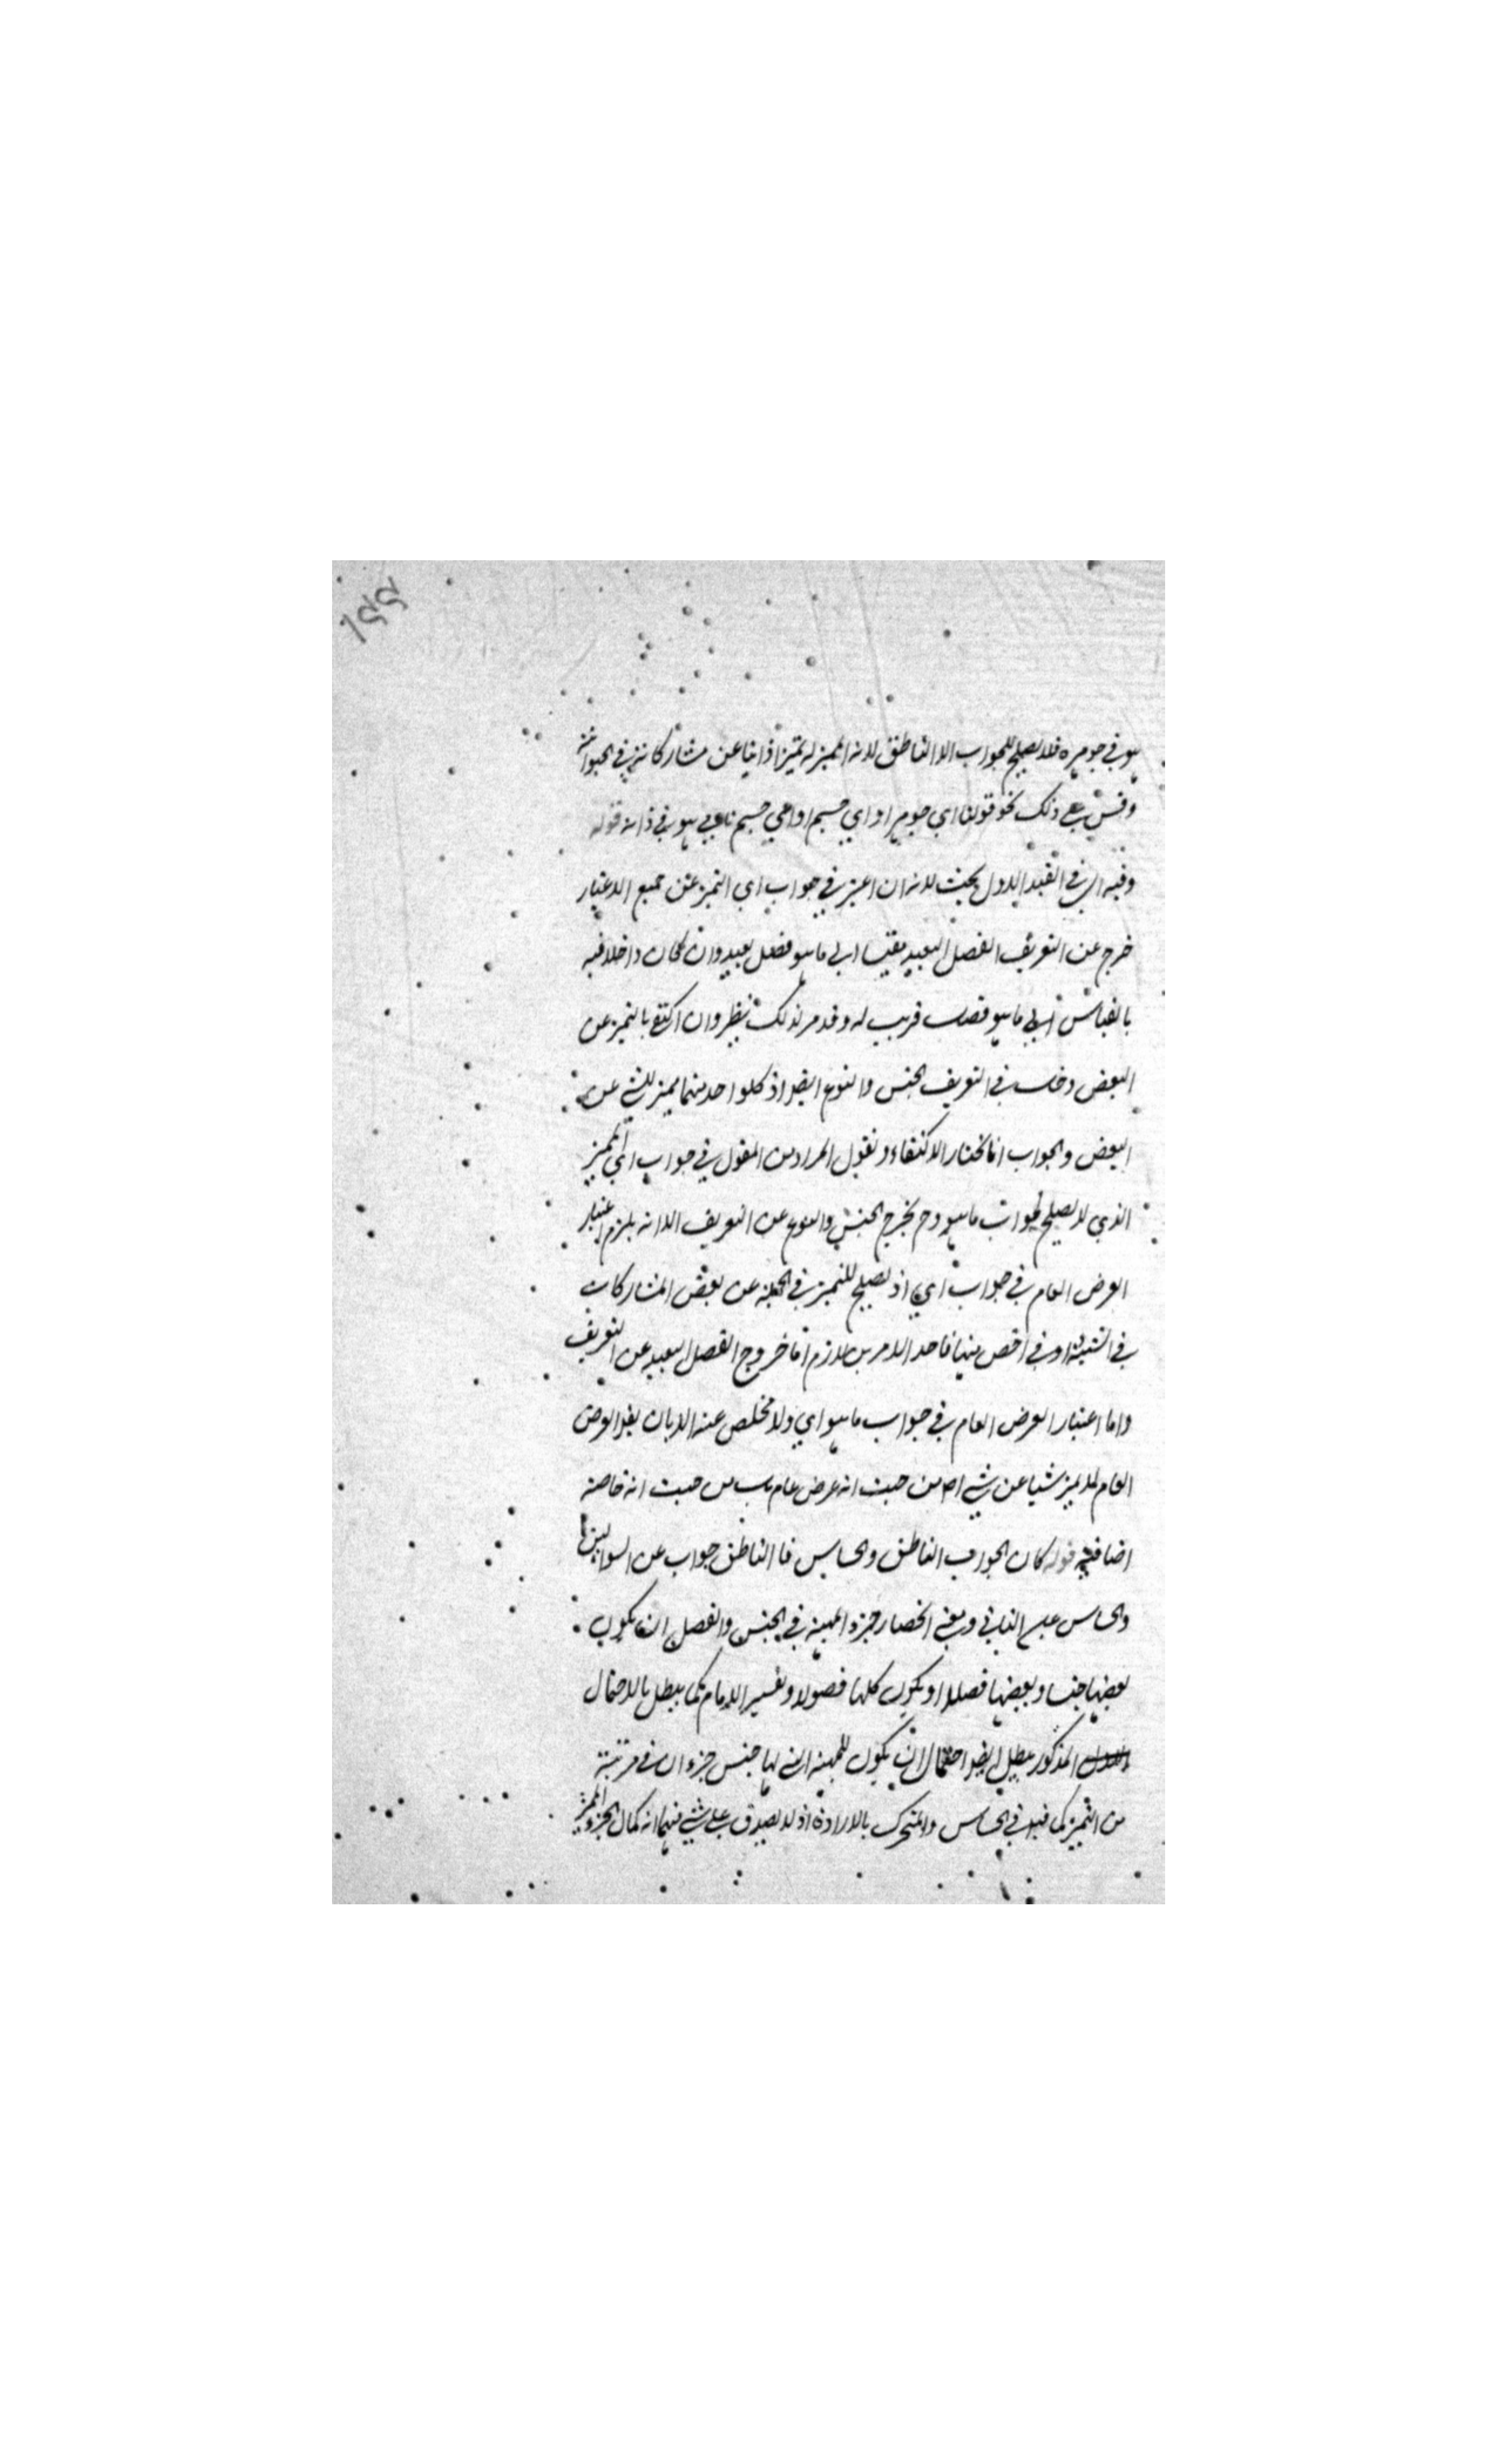 ١٩٩
هو في جوهره فلا يصلح للجواب الا الناطق لانه المميز له تميزا ذاتيا عن مشاركاته في الحيوانية
وقس على ذلك نحو قولنا اي جوهر او اي جسم او اي جسم نامي هو في ذاته قوله
وفيه اي في القيد الاول بحث لانه ان اعتبر في جواب اي التميز عن جميع الاغيار
خرج عن التعريف الفصل البعيد مقيسا الى ما هو فصل بعيد وان كان داخلا فيه
بالقياس الى ما هو فصل قريب له وقد مر لذلك نظير وان اكتفي بالتميز عن
البعض دخل في التعريف الجنس والنوع ايضا اذ كل واحد منهما يميز الشي عن
البعض والجواب انا نختار الاكتفاء ونقول المراد من المقول في جواب اي المميز
الذي لا يصلح لجواب ما هو وح يخرج الجنس والنوع عن التعريف الا انه يلزم اعتبار
العرض العام في جواب اي اذ يصلح للتميز في الجملة عن بعض المشاركات
في الشيئية او في اخص منها فاحد الامرين لازم اما خروج الفصل البعيد عن التعريف
واما اعتبار العرض العام في جواب ما هو اي ولا مخلص عنه الا بان يقال العرض
العام لا يميز شيا عن شي اصلا من حيث انه عرض عام بل من حيث انه خاصة
اضافية قوله كان الجواب الناطق والحساس فالناطق جواب عن السوالين
والحساس عن الثاني ومعنى انحصار جزء المهية في الجنس والفصل ان يكون
بعضها جنسا وبعضها فصلا او يكون كلها فصولا وتفسير الامام كما يبطل بالاحتمال
المذكور يبطل ايضا احتمال ان يكون للمهية التي لها جنس جزءان في مرتبة
من التميز كما قيل في الحساس والمتحرك بالارادة اذ لا يصدق على شي منهما انه كمال الجزء المميز